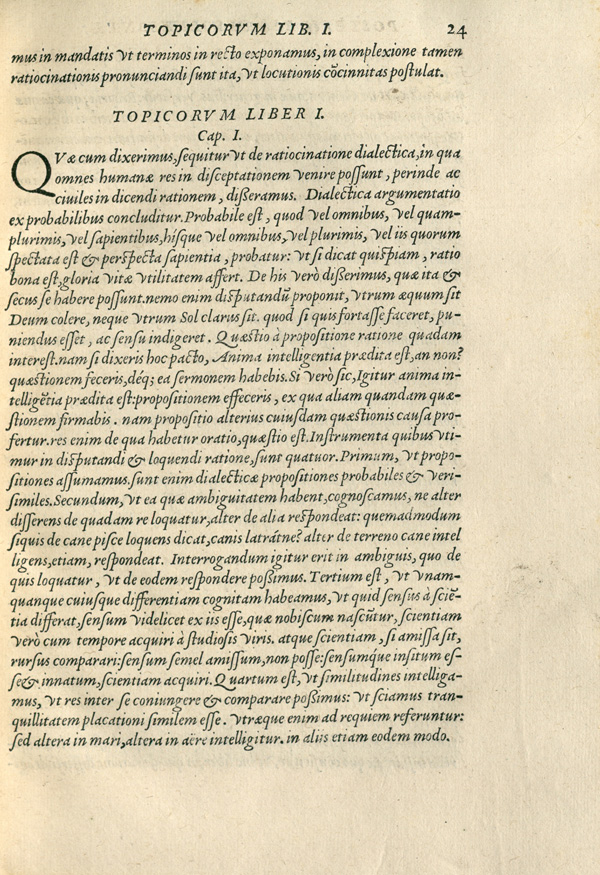 TOPICORVM LIB. I. 24
mus in mandatis vt terminos in recto exponamus, in complexione tamen
ratiocinationis pronunciandi sunt ita, vt locutionis cōcinnitas postulat.
TOPICORVM LIBER I.
Cap. I.
QVæ cum dixerimus, sequitur vt de ratiocinatione dialectica, in qua
omnes humanæ res in disceptationem venire possunt, perinde ac
ciuiles in dicendi rationem, disseramus. Dialectica argumentatio
ex probabilibus concluditur. Probabile est, quod vel omnibus, vel quam-
plurimis, vel sapientibus, hisque vel omnibus, vel plurimis, vel iis quorum
spectata est & perspecta sapientia, probatur: vt si dicat quispiam, ratio
bona est, gloria vitæ vtilitatem affert. De his verò disserimus, quæ ita &
secus se habere possunt. nemo enim disputandū proponit, vtrum æquum sit
Deum colere, neque vtrum Sol clarus sit. quod si quis fortasse faceret, pu-
niendus esset, ac sensu indigeret. Quæstio à propositione ratione quadam
interest. nam si dixeris hoc pacto, Anima intelligentia prædita est, an non?
quæstionem feceris, déq; ea sermonem habebis. Si verò sic, Igitur anima in-
telligētia prædita est: propositionem effeceris, ex qua aliam quandam quæ-
stionem firmabis. nam propositio alterius cuiusdam quæstionis causa pro-
fertur. res enim de qua habetur oratio, quæstio est. Instrumenta quibus vti-
mur in disputandi & loquendi ratione, sunt quatuor. Primum, vt propo-
sitiones assumamus. sunt enim dialecticæ propositiones probabiles & veri-
similes. Secundum, vt ea quæ ambiguitatem habent, cognoscamus, ne alter
disserens de quadam re loquatur, alter de alia respondeat: quemadmodum
si quis de cane pisce loquens dicat, canis latrátne? alter de terreno cane intel
ligens, etiam, respondeat. Interrogandum igitur erit in ambiguis, quo de
quis loquatur, vt de eodem respondere possimus. Tertium est, vt vnam-
quanque cuiusque differentiam cognitam habeamus, vt quid sensus à sciē-
tia differat, sensum videlicet ex iis esse, quæ nobiscum nascūtur, scientiam
verò cum tempore acquiri à studiosis viris. atque scientiam, si amissa sit,
rursus comparari: sensum semel amissum, non posse: sensumque insitum es-
se & innatum, scientiam acquiri. Quartum est, vt similitudines intelliga-
mus, vt res inter se coniungere & comparare possimus: vt sciamus tran-
quillitatem placationi similem esse. vtræque enim ad requiem referuntur:
sed altera in mari, altera in aëre intelligitur. in aliis etiam eodem modo.